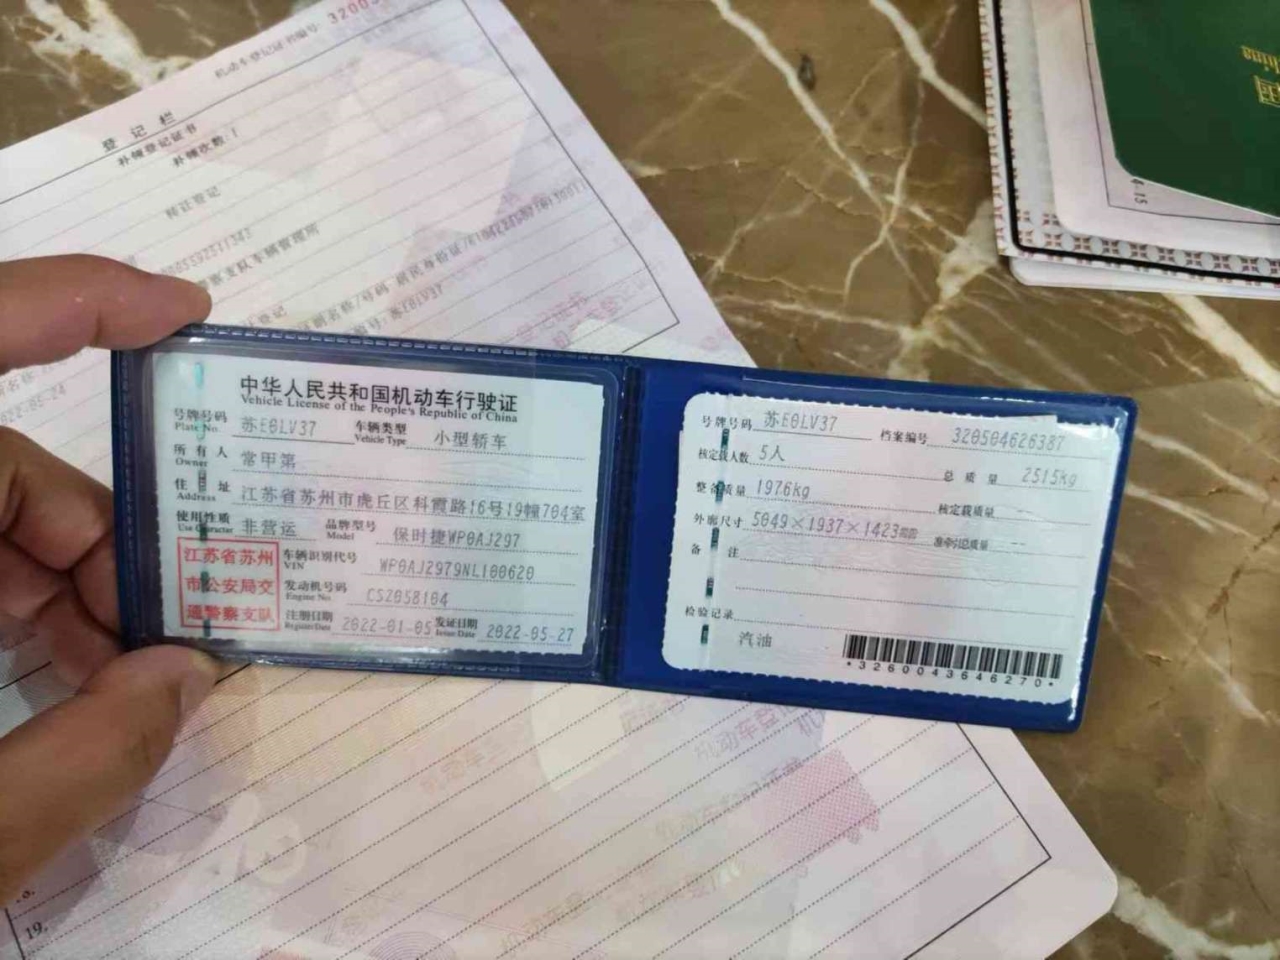 机动车登记证书编号:
登记栏
补领登记证书
补领次数:1
转让登记
19.
中华人民共和国机动车行驶证
Vehicle License of the People's Republic of China
号牌号码 苏E0LV37 车辆类型 小型轿车
Plate No. Vehicle Type
所有人 常甲第
Owner
住址 江苏省苏州市虎丘区科霞路16号19幢704室
Address
使用性质 非营运 品牌型号 保时捷WP0AJ297
Use Character Model
江苏省苏州
市公安局交
通警察支队
车辆识别代号 WP0AJ2979NL100620
VIN
发动机号码 CSZ058104
Engine No.
注册日期 2022-01-05 发证日期 2022-05-27
Register Date Issue Date
号牌号码 苏E0LV37 档案编号 320504626387
核定载人数 5人 总质量 2515kg
整备质量 1976kg 核定载质量 --
外廓尺寸 5049×1937×1423mm 准牵引总质量 --
备注
检验记录
汽油
*3260043646270*